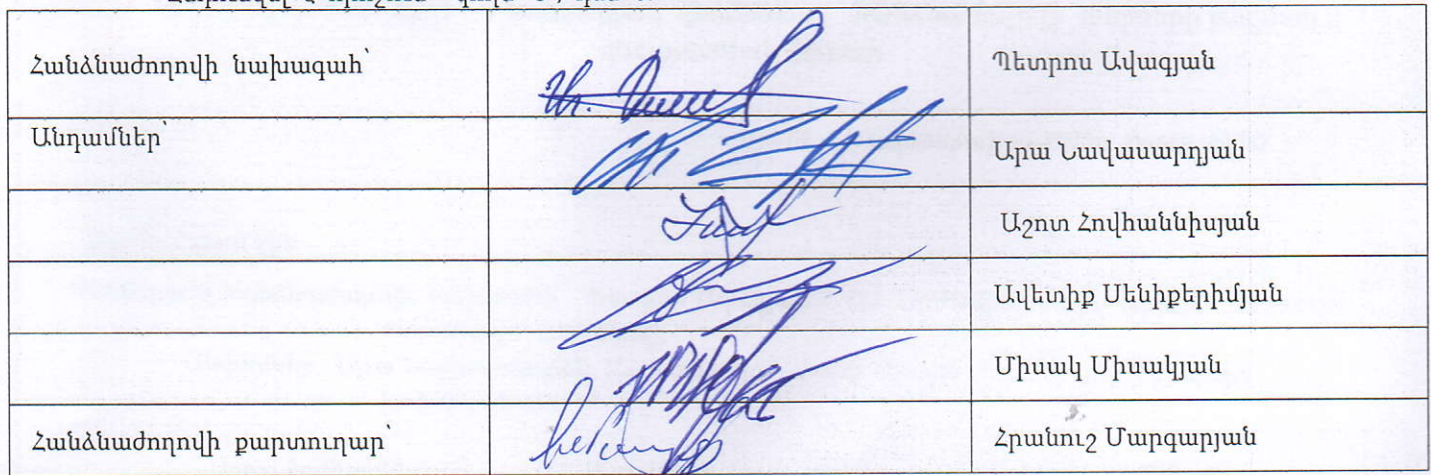 Հանձնաժողովի նախագահ՝ Պետրոս Ավագյան
Անդամներ՝ Արա Նավասարդյան
Աշոտ Հովհաննիսյան
Ավետիք Սենիքերիմյան
Միսակ Միսակյան
Հանձնաժողովի քարտուղար՝ Հրանուշ Մարգարյան